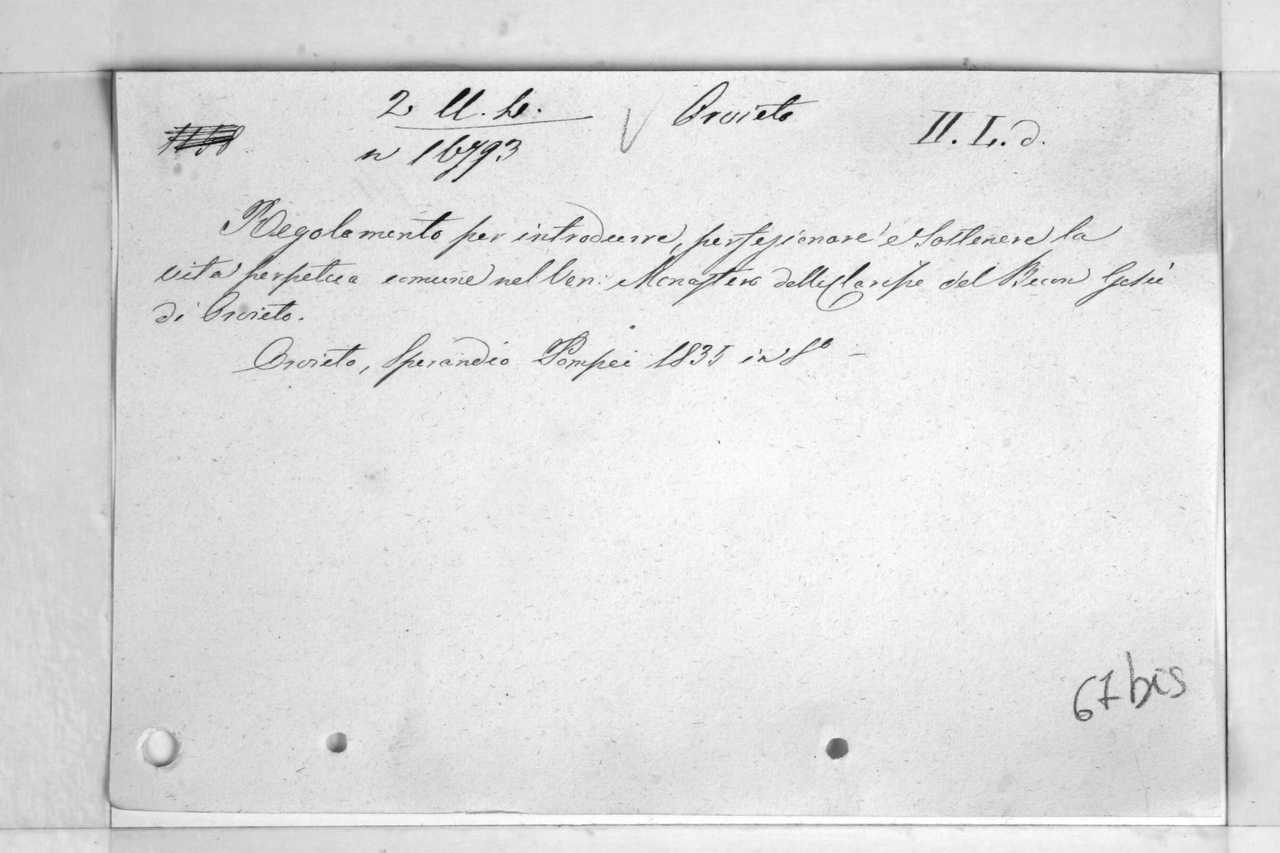 Orvieto
II. L. d.
n 16793
Regolamento per introdurre, perfezionare e sostenere la
vita perpetua comune nel Ven: Monastero delle Clarisse del Buon Gesù
di Orvieto.
Orvieto, Sperandio Pompei 1835 in 8º
67 bis